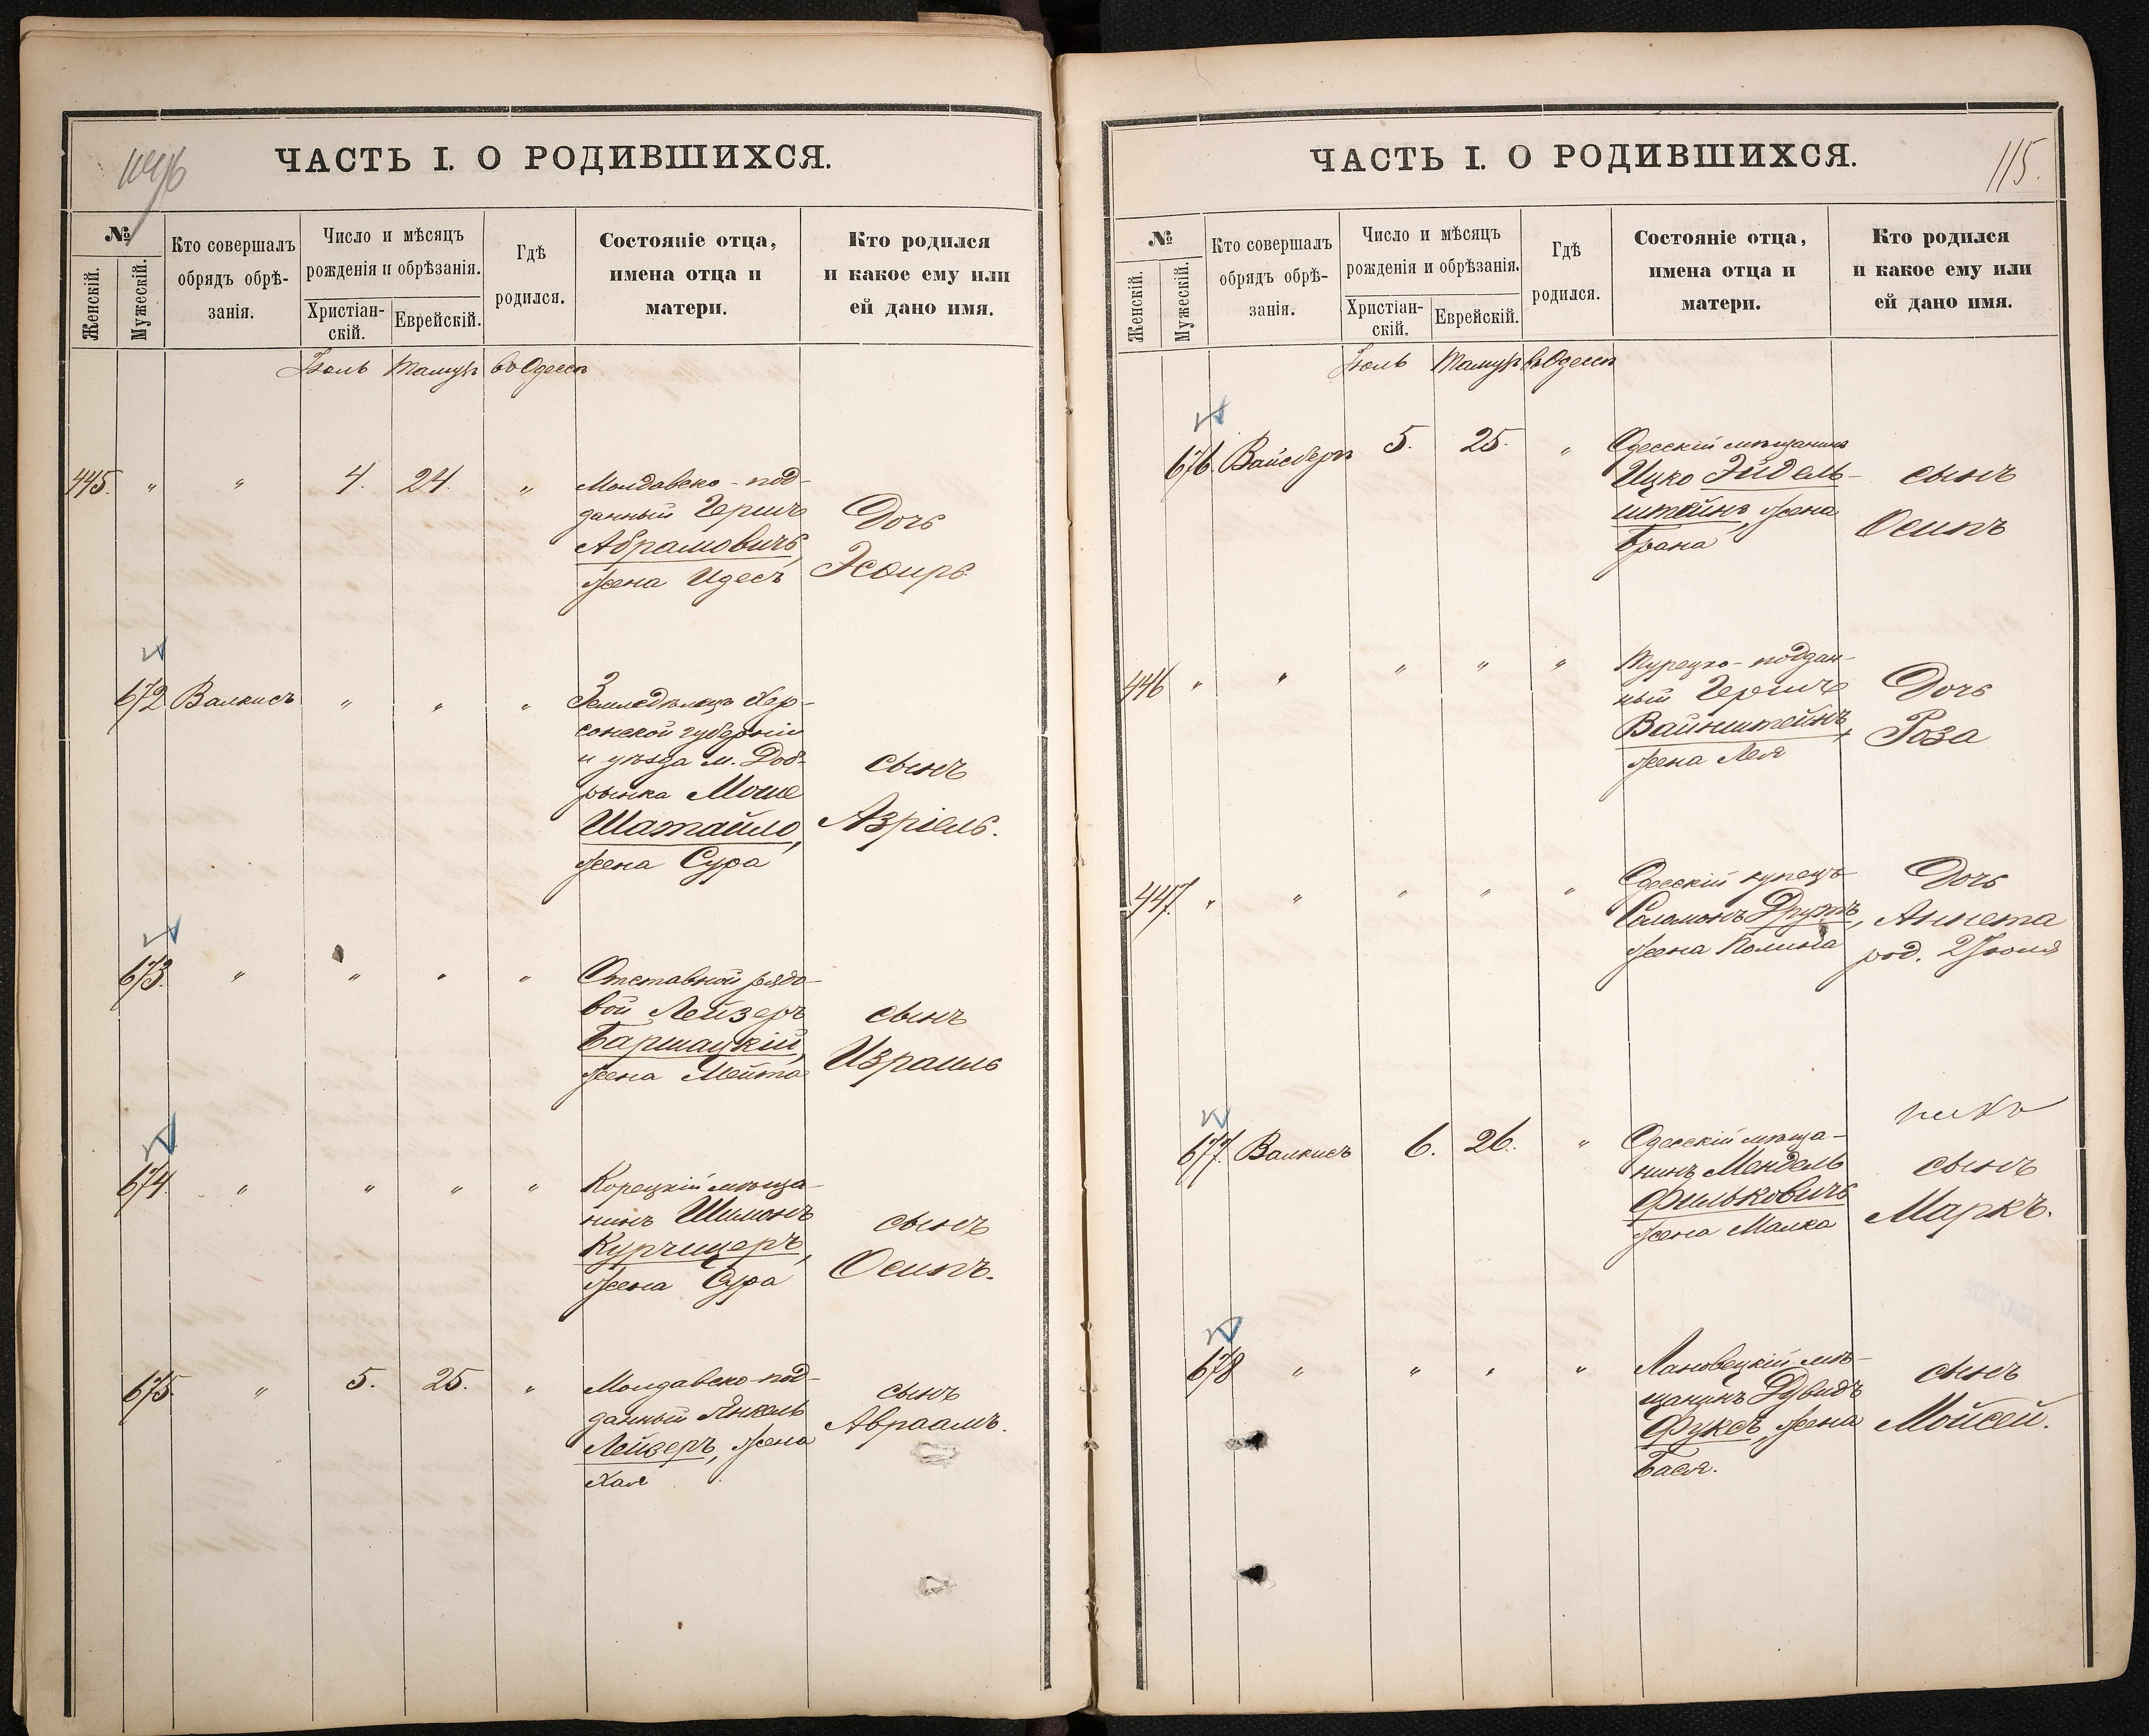 ЧАСТЬ I. О РОДИВШИХСЯ.
№
Женскій.
Мужескій.
Кто совершалъ
обрядъ обрѣ-
занія.
Число и мѣсяцъ
рожденія и обрѣзанія.
Христіан-
скій.
Еврейскій.
Гдѣ
родился.
Состояніе отца,
имена отца и
матери.
Кто родился
и какое ему или
ей дано имя.
Іюль Тамузъ въ Одессѣ
445. " " 4. 24. "
Молдавско-под-
данный Гершъ
Абрамовичъ,
жена Идесъ
Дочь
Эсѳирь
672 Валкисъ " " "
Земледѣлецъ Хер-
сонской губерніи
и уѣзда м. Доб-
рынка Моше
Шатайло,
жена Сура
сынъ
Азріель.
673. " " " "
Отставной рядо-
вой Лейзеръ
Баршацкій,
жена Мейта
сынъ
Израиль
674. " " " "
Корецкій мѣща-
нинъ Шимонъ
Курчицеръ,
жена Сура
сынъ
Осипъ.
675. " 5. 25. "
Молдавско-под-
данный Янкель
Лейзеръ, жена
Хая
сынъ
Авраамъ.
ЧАСТЬ I. О РОДИВШИХСЯ.
115.
№
Женскій.
Мужескій.
Кто совершалъ
обрядъ обрѣ-
занія.
Число и мѣсяцъ
рожденія и обрѣзанія.
Христіан-
скій.
Еврейскій.
Гдѣ
родился.
Состояніе отца,
имена отца и
матери.
Кто родился
и какое ему или
ей дано имя.
Іюль Тамузъ въ Одессѣ
676. Вайсберъ 5. 25. "
Одесскій мѣщанинъ
Ицко Эйдель-
штейнъ, жена
Брана
сынъ
Осипъ
446 " " " " "
Турецко-поддан-
ный Гершъ
Вайнштейнъ,
жена Лея
Дочь
Роза
447. " " " " "
Одесскій купецъ
Соломонъ Друтъ,
жена Полина
Дочь
Аннета
род. 2 Іюня
677. Валкисъ 6. 26. "
Одесскій мѣща-
нинъ Мендель
Фильковичъ
жена Малка
сынъ
Маркъ.
678 " " " "
Лановецкій мѣ-
щанинъ Дувидъ
Фуксъ, жена
Бася.
сынъ
Мойсей.